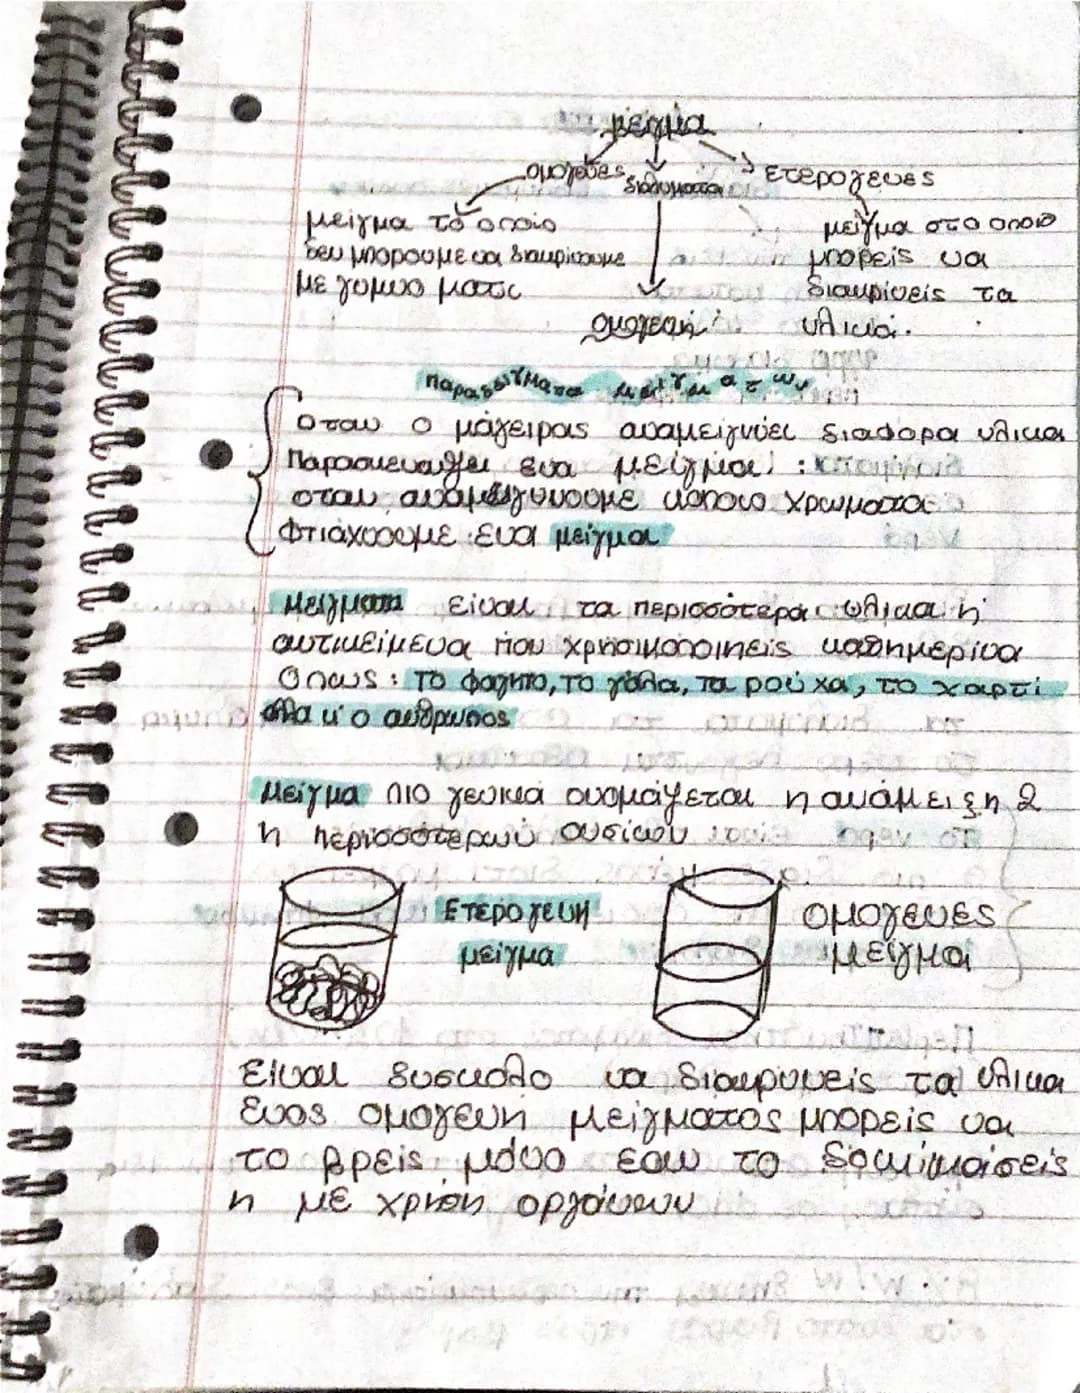 μείγμα
ομογενές διαλύματα ετερογενές
μείγμα το οποίο μείγμα στο οποιο
δεν μπορουμε να διακρίνουμε μπορεις να
με γυμνο ματι διακρίνεις τα
ομογενή υλικά.
Παραδείγματα μειγμάτων
Οταν ο μάγειρας αναμειγνύει διαφορα υλικα
Παρασκευαζει ενα μείγμα
οταν αναμειγνύουμε καποιο χρωματα
Φτιάχνουμε ενα μείγμα
Μειγματα είναι τα περισσότερα υλικα ή
αντικείμενα που χρησιμοποιηεις καθημερινα
Οπως: το φαγητο, το γάλα, τα ρούχα, το χαρτί
αλλα κ' ο ανθρωπος
Μείγμα πιο γενικά ονομάζεται η ανάμειξη 2
η περισσότερων ουσιων
Ετερογενή ομογενες
μείγμα μείγμα
Είναι δυσκολο να διακρινεις τα υλικα
ενος ομογενή μείγματος μπορεις να
το βρεις μόνο εαν το δοκιμάσεις
η με χρηση οργάνων